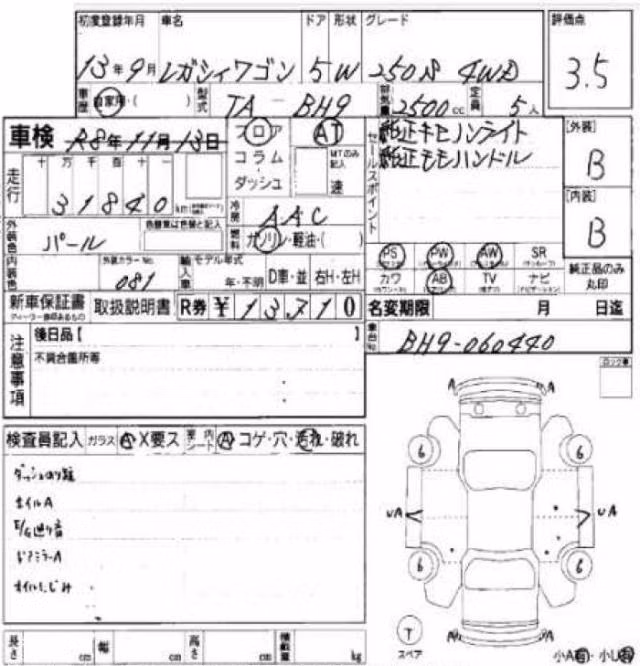 初度登録年月 車名 ドア 形状 グレード 評価点
13年9月 レガシィワゴン 5 W 250S 4WD 3.5
車歴 自家用・( ) 型式 TA-BH9 排気量 2500cc 定員 5人
車検 R8年11月13日 フロア AT セールスポイント 純正キセノンライト [外装]
コラム MTのみ記入 純正モモハンドル B
ダッシュ 速
走行 十万千百十一 31840km 冷房 AAC [内装]
外装色 パール 色替車は色替と記入 燃料 ガソリン・軽油・( ) B
内装色 外装カラーNo. 081 輸入車 モデル年式 年・不明 D車・並 右H・左H
PS PW AW SR 純正品のみ丸印
カワ AB TV ナビ
新車保証書 取扱説明書 R券 ¥13710 名変期限 月 日迄
注意事項 後日品【 】 車台No. BH9-060440
不具合箇所等
検査員記入 ガラス A・X要ス 内シート A・コゲ・穴・汚れ・破れ
ホイルA
ドアミラーA
オイルにじみ
A A
6 6
UA UA
6 6
T スペア
A A
長さ cm 幅 cm 高さ cm 積載量 kg